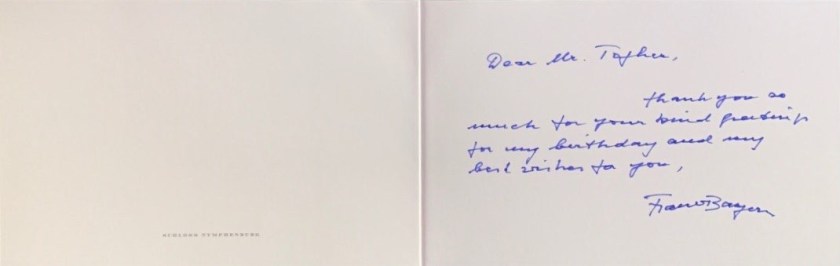 SCHLOSS NYMPHENBURG
Dear Mr. Topher,
thank you so
much for your kind greetings
for my birthday and my
best wishes to you,
Franz v Bayern